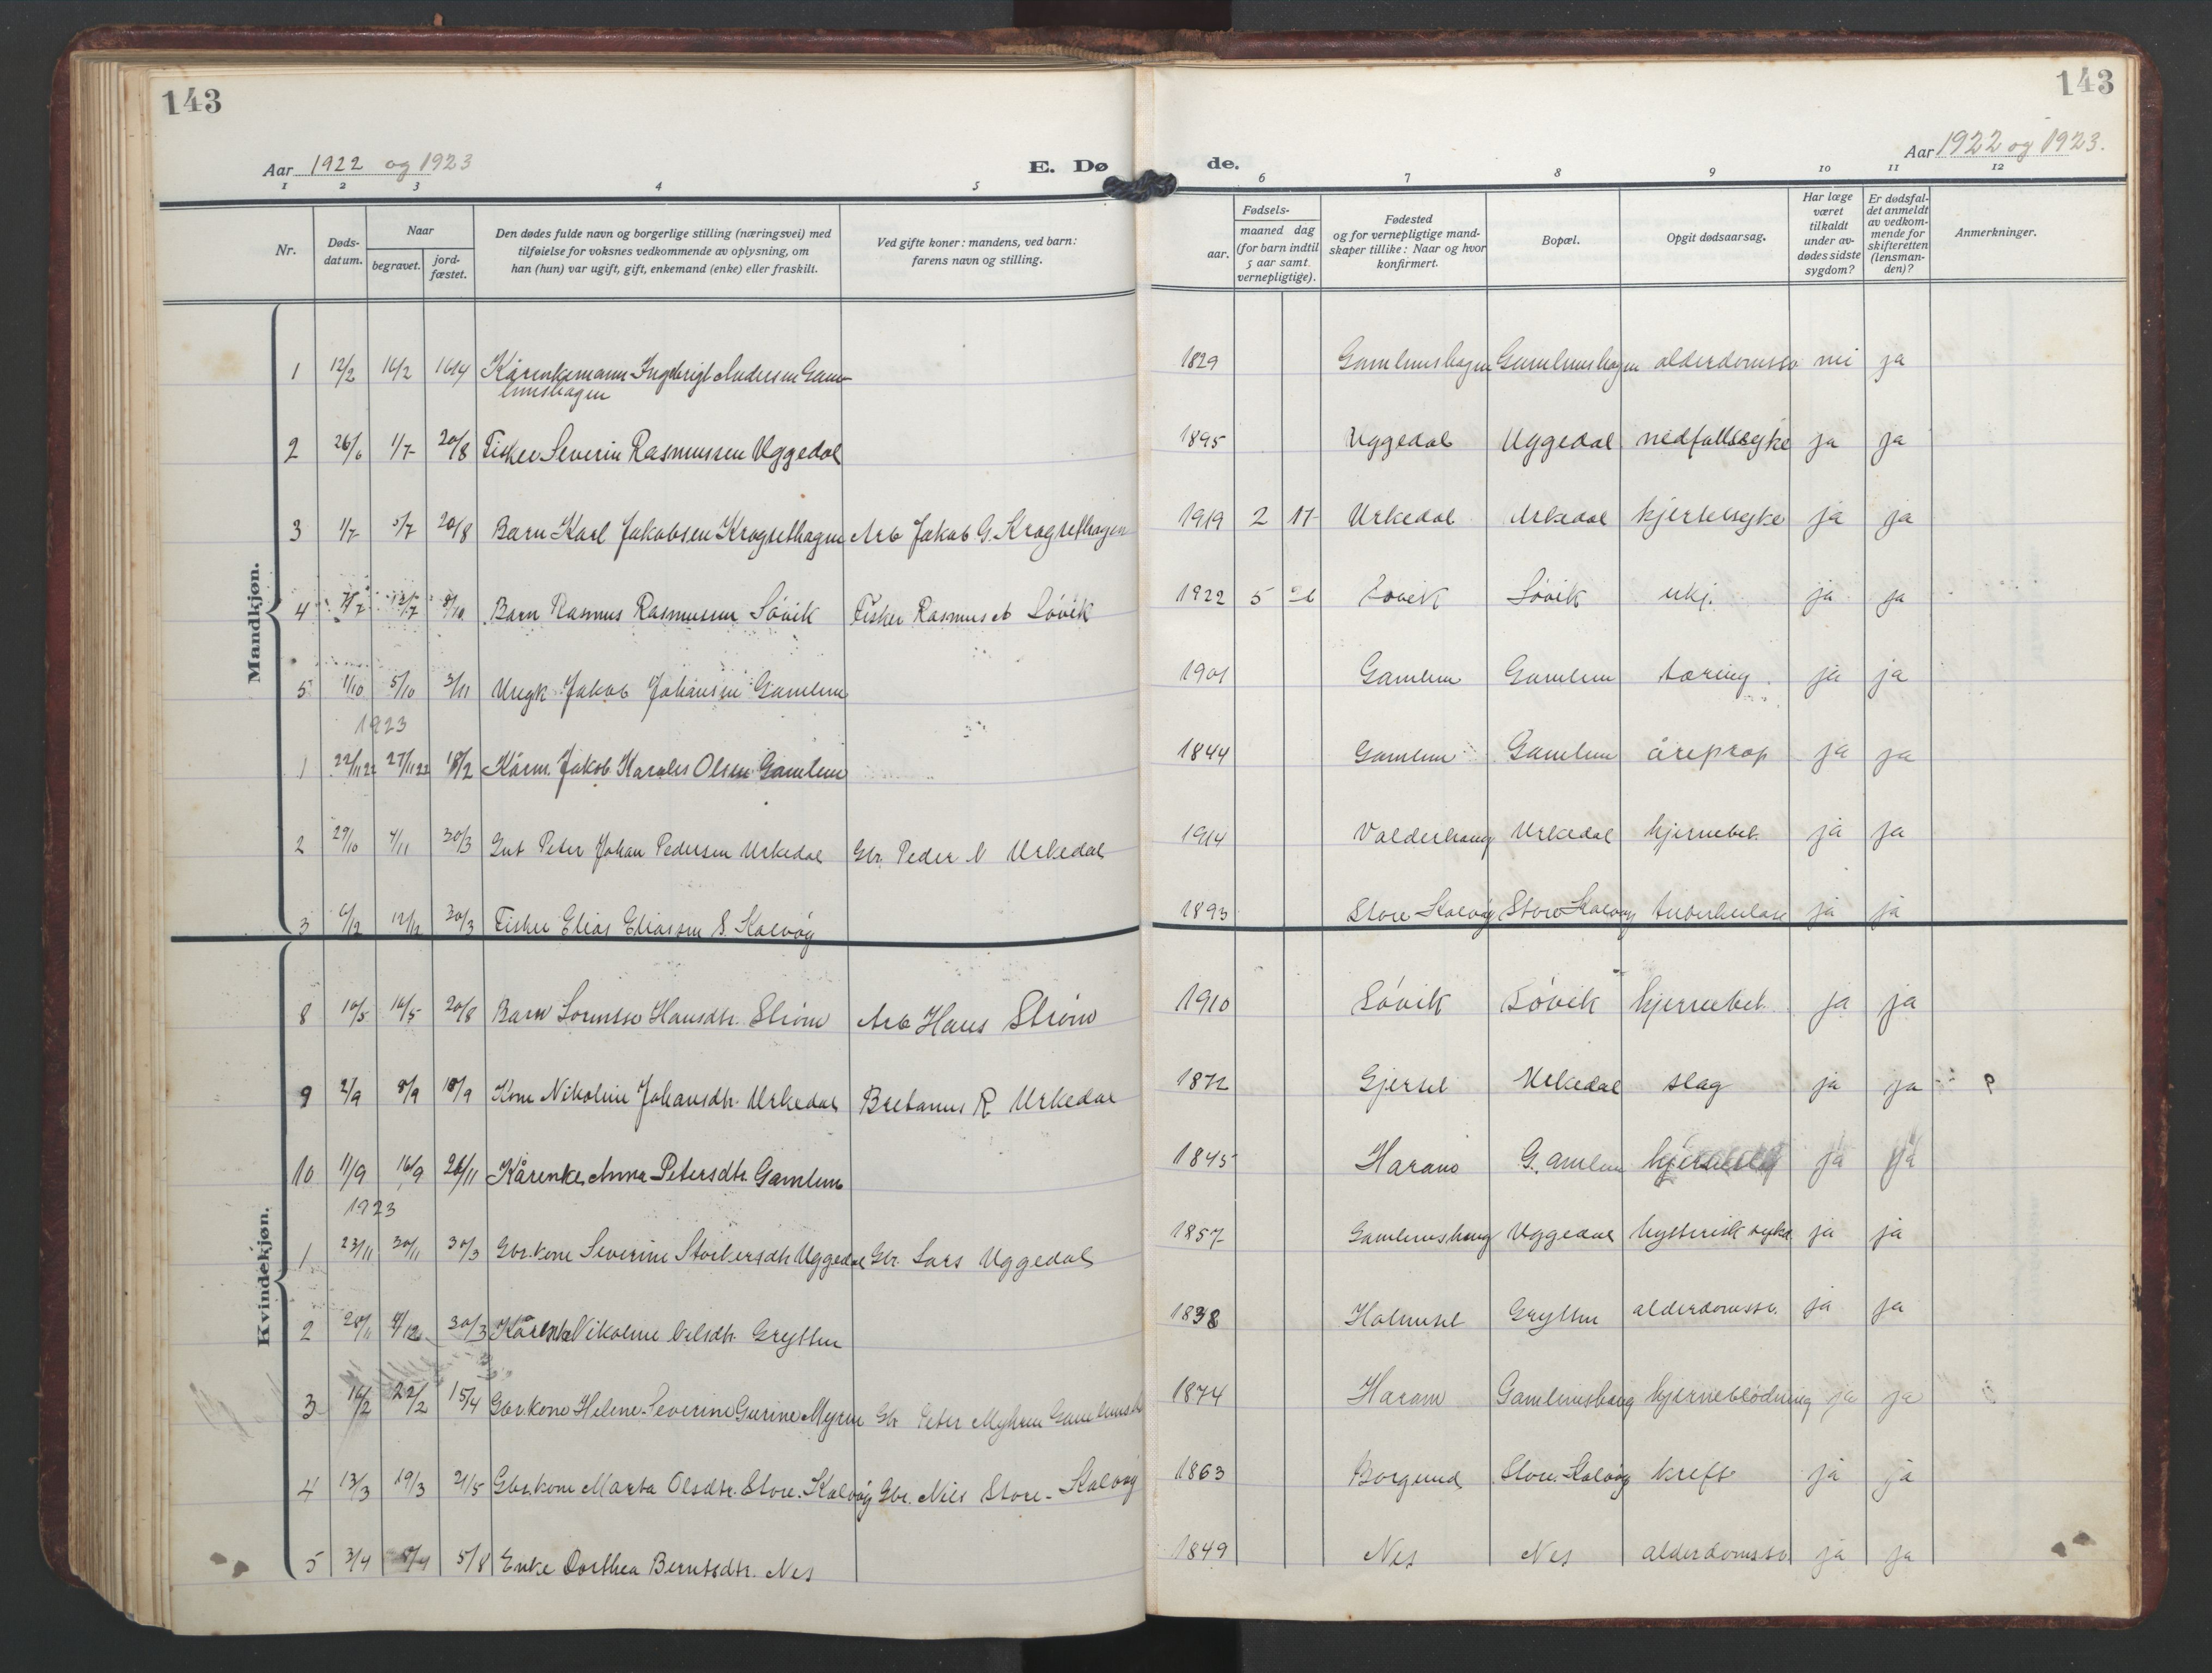 143
143
Aar 1922 og 1923
E. Dø
de.
Aar 1922 og 1923.
1 2 3 4 5 6 7 8 9 10 11 12
Nr.
Døds-
datum.
Naar
begravet.
jord-
fæstet.
Den dødes fulde navn og borgerlige stilling (næringsvei) med
tilføielse for voksnes vedkommende av oplysning, om
han (hun) var ugift, gift, enkemand (enke) eller fraskilt.
Ved gifte koner: mandens, ved barn:
farens navn og stilling.
Fødsels-
aar.
maaned dag
(for barn indtil
5 aar samt
vernepligtige).
Fødested
og for vernepligtige mand-
skaper tillike: Naar og hvor
konfirmert.
Bopæl.
Opgit dødsaarsag.
Har læge
været
tilkaldt
under av-
dødes sidste
sygdom?
Er dødsfal-
det anmeldt
av vedkom-
mende for
skifteretten
(lensman-
den)?
Anmerkninger.
Mandkjøn.
1 12/2 16/2 Kårenkemann Ingebrigt Andersen Gam-
lemshagen 1829 Gamlemshagen Gamlemshagen alderdomssv nei ja
2 26/6 1/7 20/8 Fisker Severin Rasmussen Uggedal 1895 Uggedal Uggedal nedfallssyke ja ja
3 1/7 5/7 20/8 Barn Karl Jakobsen Krogsethagen Arb Jakob G. Krogsethagen 1919 2 17 Urkedal Urkedal hjertesyke ja ja
4 12/7 8/10 Barn Rasmus Rasmussen Søvik Fisker Rasmus A Søvik 1922 5 Søvik Søvik ukj. ja ja
5 1/10 5/10 3/11 Ungk. Jakob Johansen Gamlem 1901 Gamlem Gamlem tæring ja ja
1923
1 22/11 22 27/11 22 18/2 Kårm. Jakob Karolus Olsen Gamlem 1844 Gamlem Gamlem åreprop ja ja
2 29/10 4/11 30/3 Gut Peter Johan Pedersen Urkedal Gbr. Peder N Urkedal 1914 Valderhaug Urkedal hjernebet. ja ja
3 6/12 12/12 30/3 Fisker Elias Eliassen S. Kalvøy 1893 Store Kalvøy Store Kalvøy tuberkulose ja ja
Kvindekjøn.
8 10/5 16/5 20/8 Barn Lorentse Hansdtr. Strøm Arb Hans Strøm 1910 Søvik Søvik hjernebet. ja ja
9 2/9 8/9 18/9 Kone Nikoline Johansdtr. Urkedal Bretanus R Urkedal 1872 Gjerset Urkedal slag ja ja
10 11/9 16/9 26/11 Kårenke Anna Petersdtr. Gamlem 1845 Haram Gamlem ja ja
1923
1 23/11 30/11 30/3 Gbr.kone Severine Uggedal Gbr. Lars Uggedal 1857 Gamlemshaug Uggedal hysterisk syke ja ja
2 28/11 30/3 Kårenke Nikoline Nilsdtr. Grytten 1838 Holmset Grytten alderdomssv. ja ja
3 16/2 22/2 15/4 Gbrkone Helene Severine Gurine Myren Gbr Peter Myhren 1874 Haram Gamlemshaug hjerneblødning ja ja
4 13/3 19/3 21/5 Gbr.kone Marta Olsdtr. Store-Kalvøy Gbr. Nils Store-Kalvøy 1863 Borgund Store-Kalvøy kreft ja ja
5 3/4 8/4 5/8 Enke Dorthea Berntsdtr. Nes 1849 Nes Nes alderdomssv ja ja